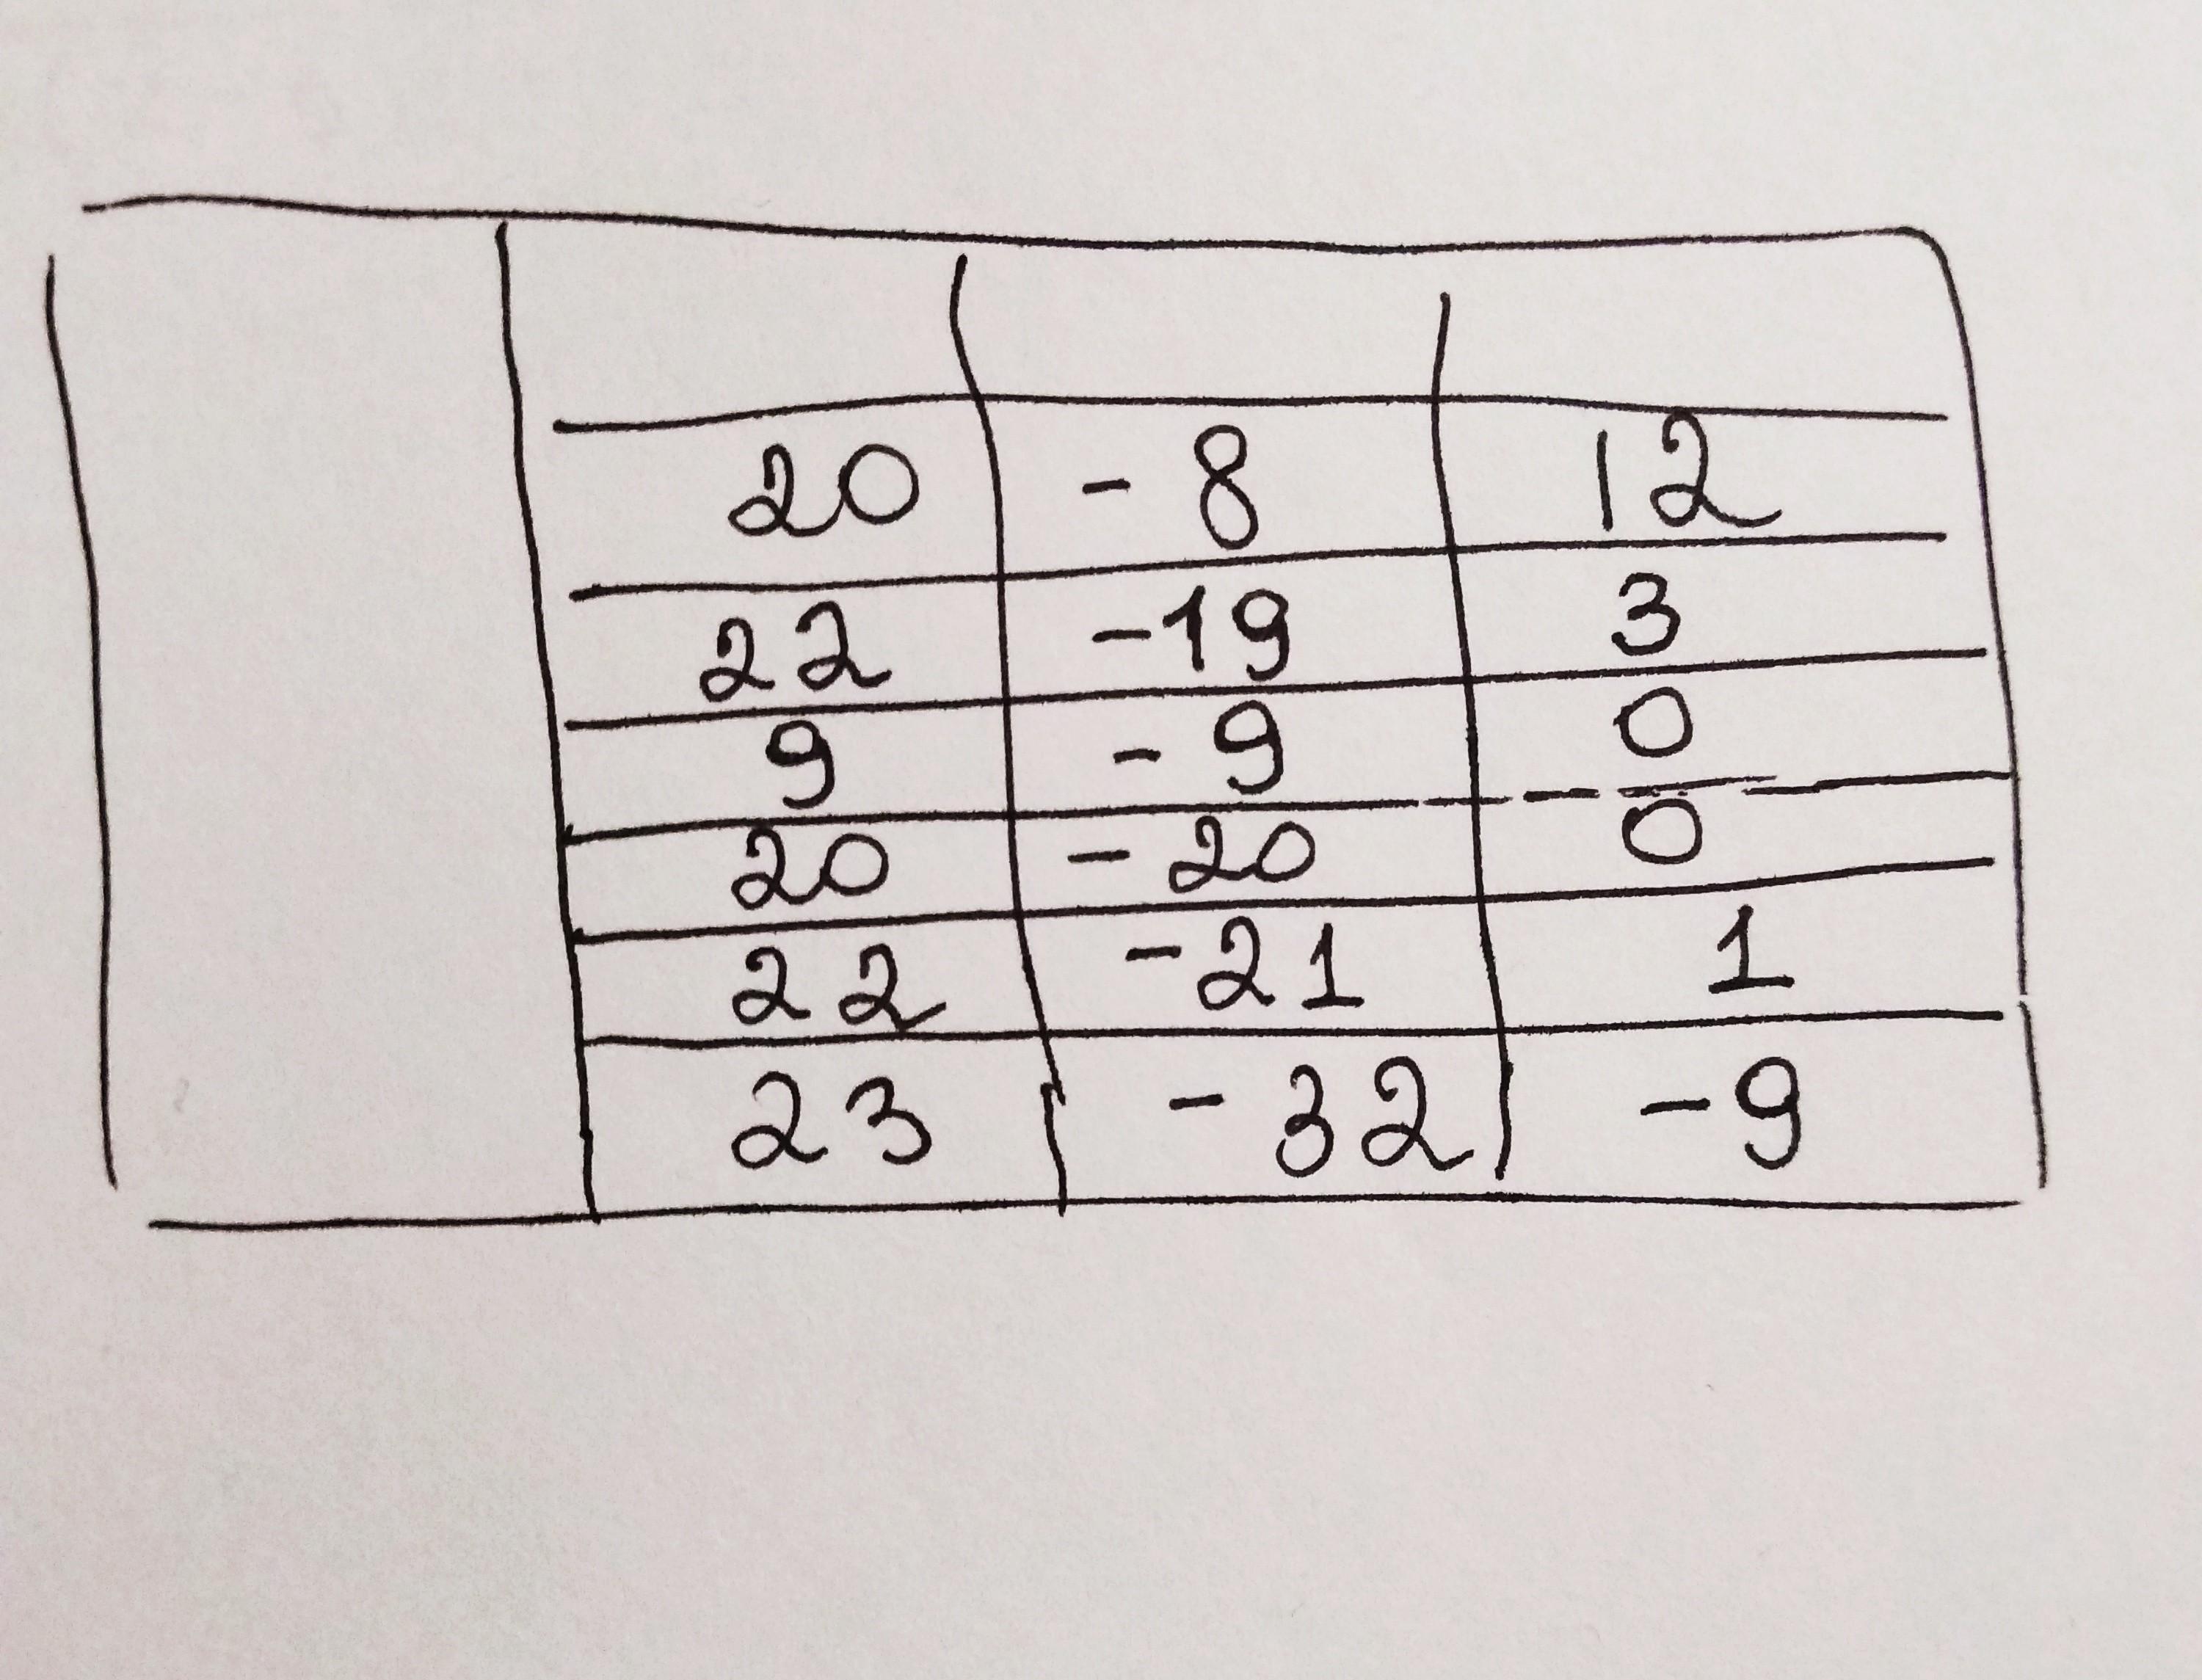 20 - 8 12
22 -19 3
9 - 9 0
20 - 20 0
22 -21 1
23 - 32 -9